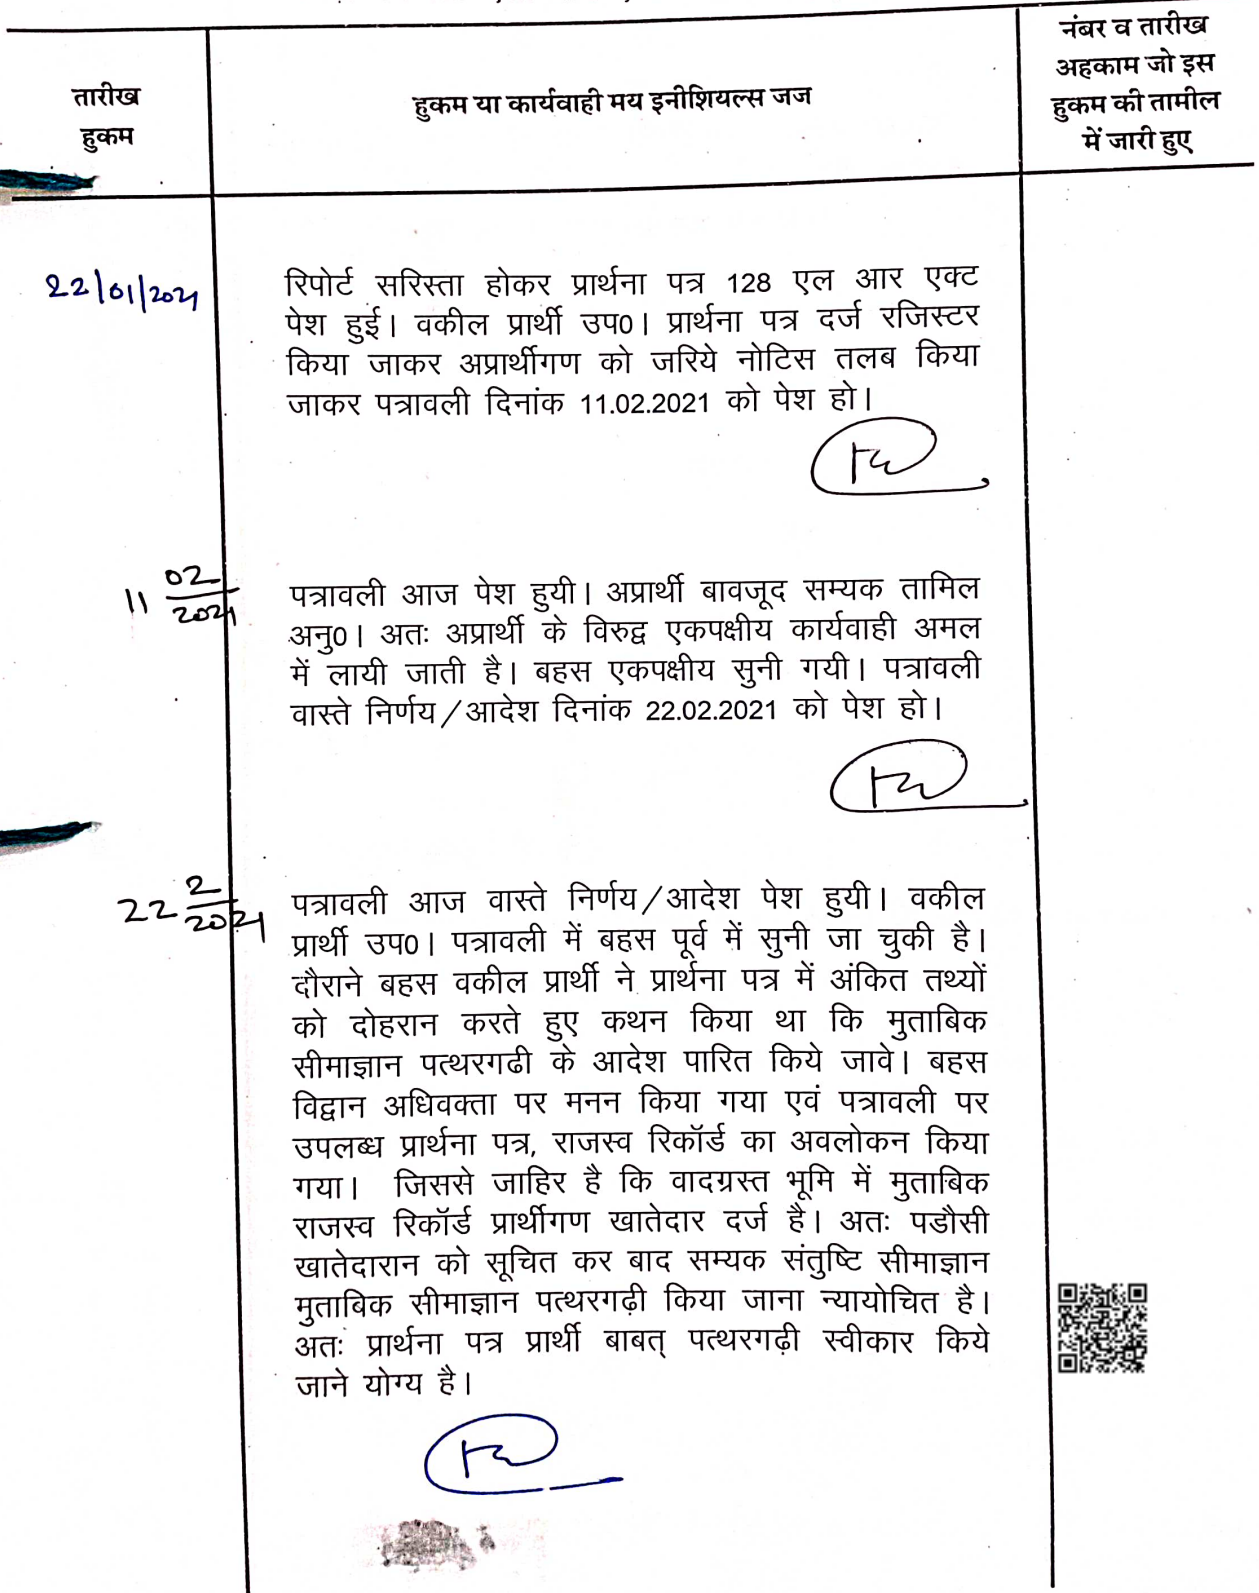 तारीख
हुकम
हुकम या कार्यवाही मय इनीशियल्स जज
नंबर व तारीख
अहकाम जो इस
हुकम की तामील
में जारी हुए
22/01/2021
रिपोर्ट सरिस्ता होकर प्रार्थना पत्र 128 एल आर एक्ट
पेश हुई। वकील प्रार्थी उप0। प्रार्थना पत्र दर्ज रजिस्टर
किया जाकर अप्रार्थीगण को जरिये नोटिस तलब किया
जाकर पत्रावली दिनांक 11.02.2021 को पेश हो।
11 02/2021
पत्रावली आज पेश हुयी। अप्रार्थी बावजूद सम्यक तामिल
अनु0। अतः अप्रार्थी के विरुद्व एकपक्षीय कार्यवाही अमल
में लायी जाती है। बहस एकपक्षीय सुनी गयी। पत्रावली
वास्ते निर्णय/आदेश दिनांक 22.02.2021 को पेश हो।
22 2/2021
पत्रावली आज वास्ते निर्णय/आदेश पेश हुयी। वकील
प्रार्थी उप0। पत्रावली में बहस पूर्व में सुनी जा चुकी है।
दौराने बहस वकील प्रार्थी ने प्रार्थना पत्र में अंकित तथ्यों
को दोहरान करते हुए कथन किया था कि मुताबिक
सीमाज्ञान पत्थरगढी के आदेश पारित किये जावे। बहस
विद्वान अधिवक्ता पर मनन किया गया एवं पत्रावली पर
उपलब्ध प्रार्थना पत्र, राजस्व रिकॉर्ड का अवलोकन किया
गया। जिससे जाहिर है कि वादग्रस्त भूमि में मुताबिक
राजस्व रिकॉर्ड प्रार्थीगण खातेदार दर्ज है। अतः पडौसी
खातेदारान को सूचित कर बाद सम्यक संतुष्टि सीमाज्ञान
मुताबिक सीमाज्ञान पत्थरगढ़ी किया जाना न्यायोचित है।
अतः प्रार्थना पत्र प्रार्थी बाबत् पत्थरगढ़ी स्वीकार किये
जाने योग्य है।